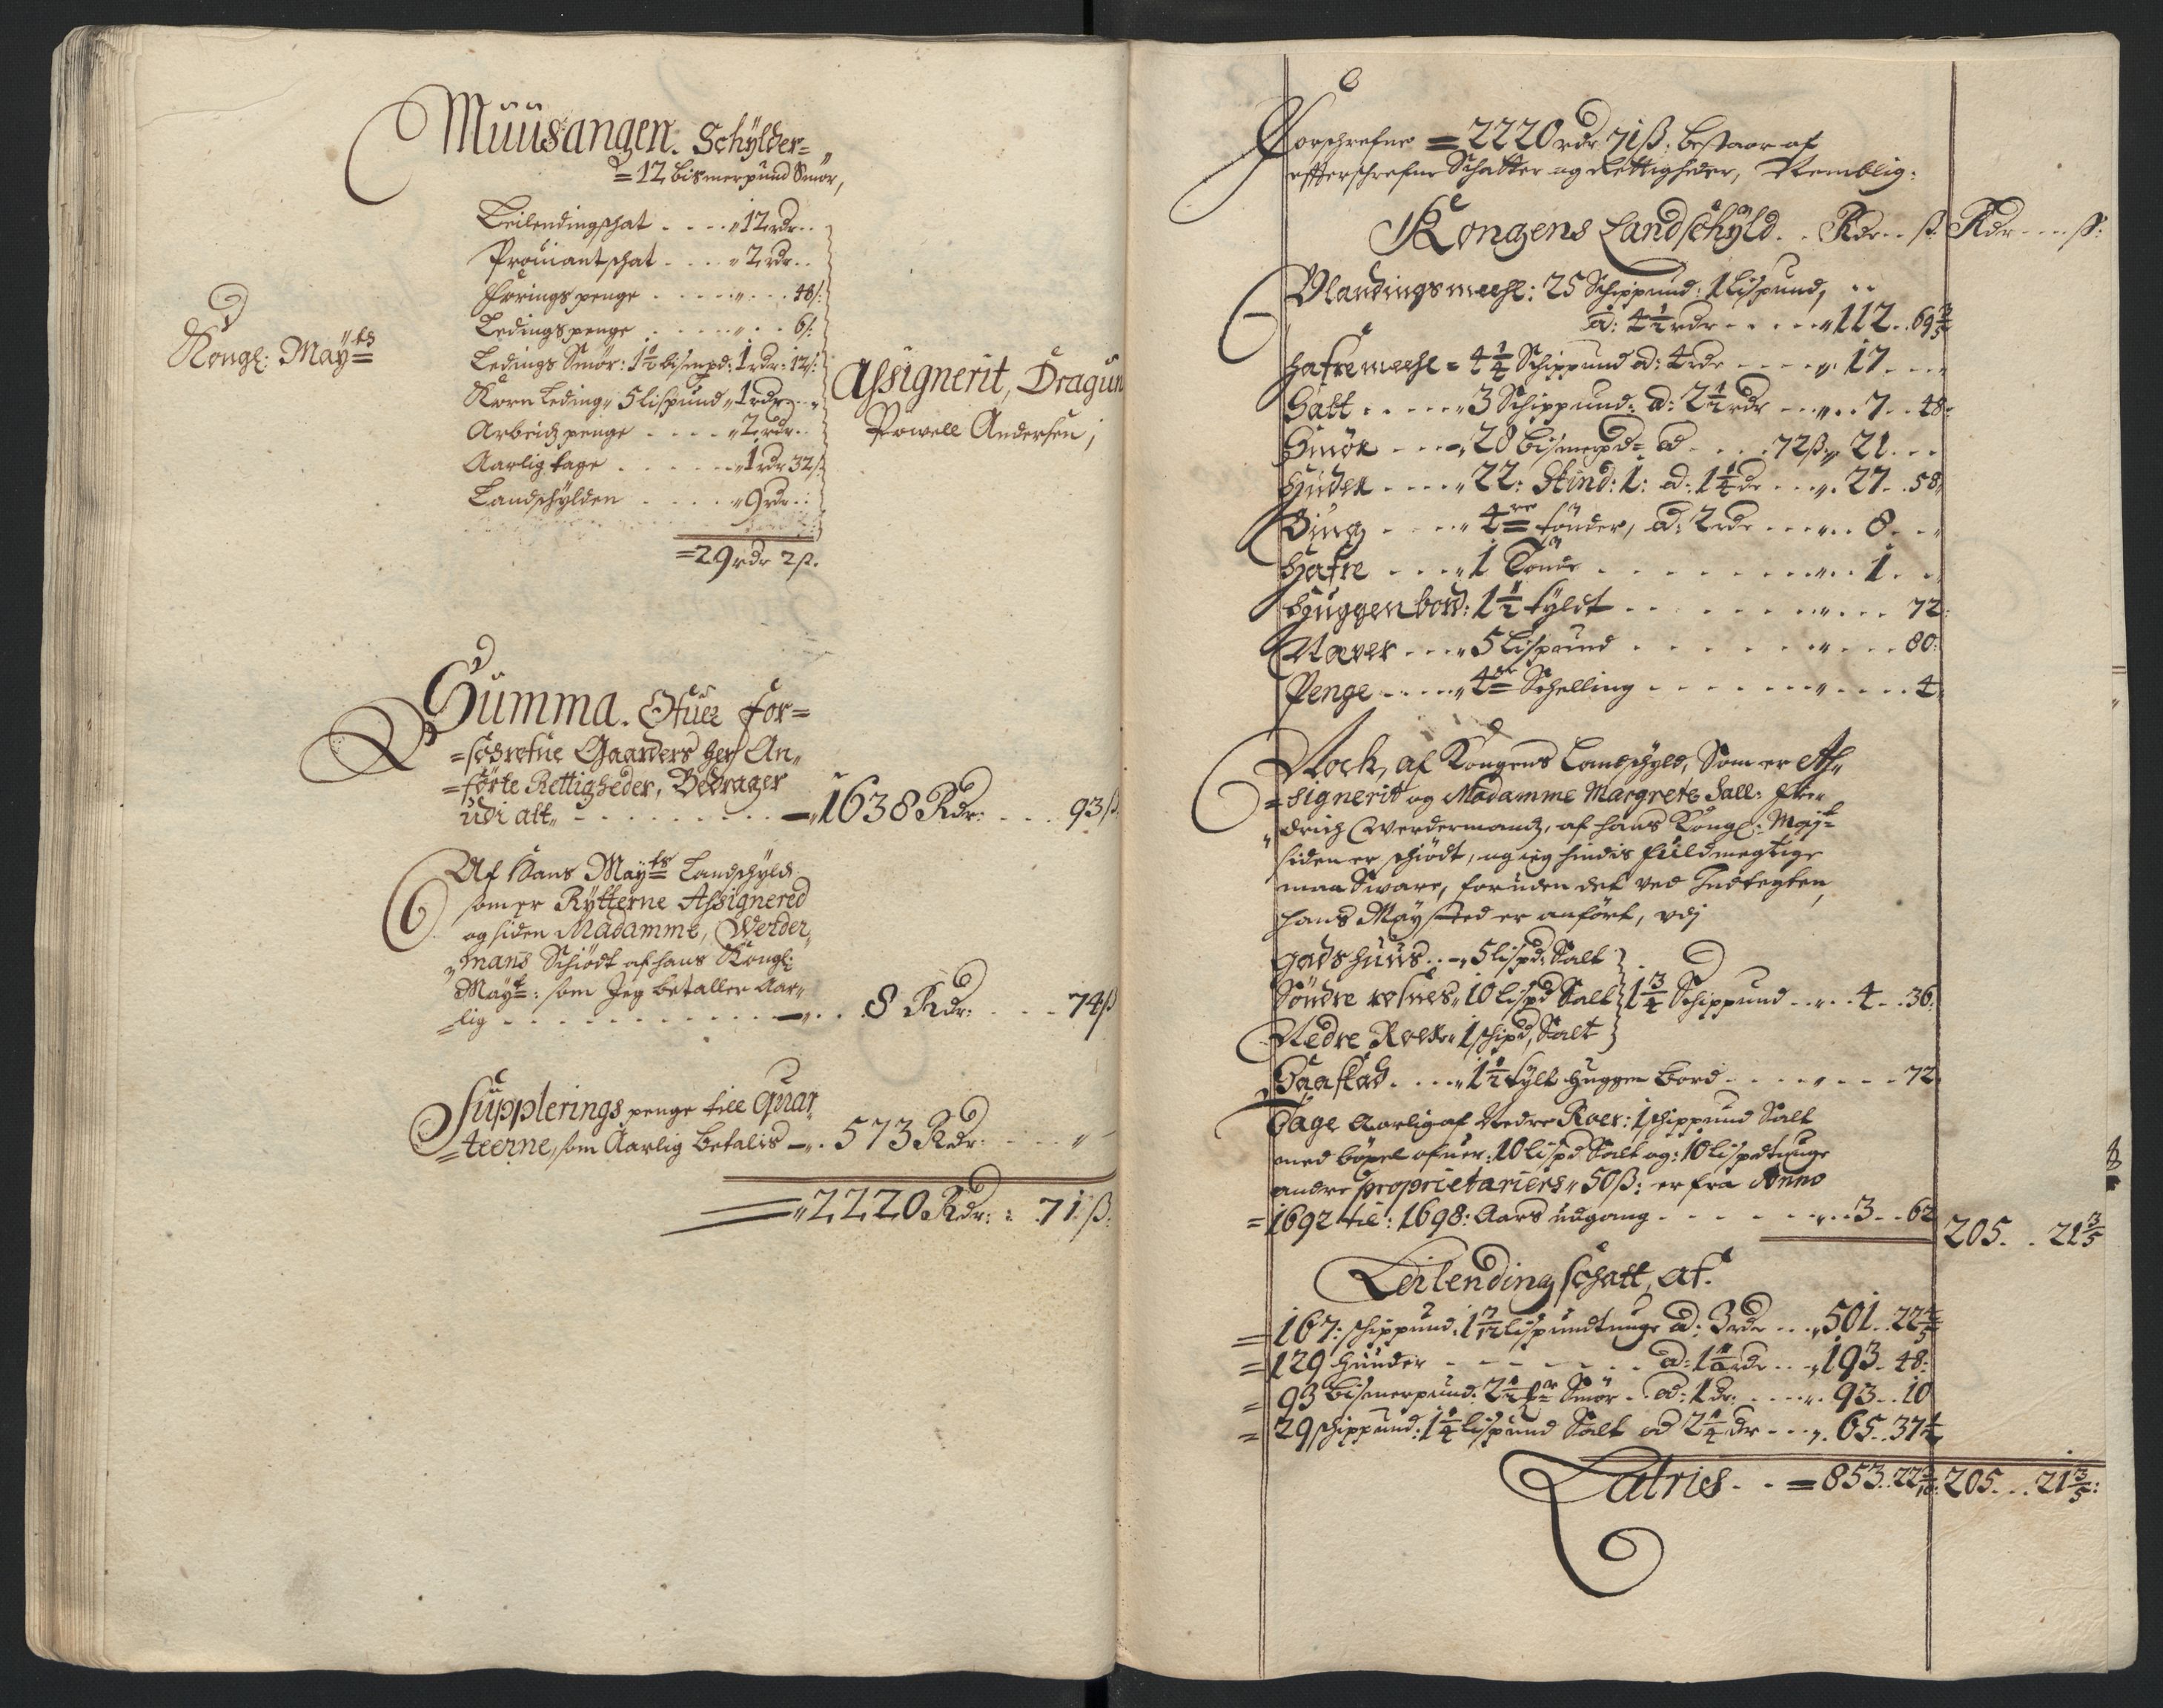 Müüsangen. Schÿlder=
=12 bismerpund Smör,
Leilendingschat . . . . 12 rdr . .
Prouiantschat . . . . 2 rdr . .
Forings penge . . . . . . 48 ß:
Ledings penge . . . . . . 6 ß:
Ledings Smör: 1½ bismrpd: 1 rdr: 12 ß:
Korn Leding 5 lispund 1 rdr
Arbeidz penge . . . . 2 rdr . .
Aarlig tage . . . . . 1 rdr 32 ß
Landschÿlden . . . . 9 rdr . .
=29 rdr 2 ß.
Kongl: Maÿts
Assignerit, Dragun
Powell Andersen;
Summa. Ofuer for=
=schrefne Gaarders her An,,
=förte Rettigheder, Bedrager
udi alt,, . . . . . . 1638 Rdr: . . . 93 ß
Af Hans Maÿts Landschÿld
som er Rÿtterne Assignered
og siden Madamme, Werder,,
,,mans Schiödt af hans Kongl:
Maÿt: som Jeg betaller Aar,,
=lig . . . . . . . 8 Rdr: . . . 74 ß
Supplerings penge till Quar,,
=teerne, som Aarlig betalis . . 573 Rdr: . . .
2220 Rdr: : 71 ß:
Forschrefne =2220 rdr 71 ß: bestaar af
effterschrefne Schatter og Rettigheder, Nemblig:
Kongens Landschÿld. . Rdr . . ß Rdr . . . . ß:
Blandings meehl: 25 Schippund: 1 lispund,
ad: 4½ rdr . . . . . 112 . . 69 3/5
Hafremeehl = 4¼ Schippund ad: 4 rdr . . . . 17 . . .
Salt . . . . . 3 Schippund: ad: 2½ rdr . . . 7 . . 48
Smör . . . 28 bismerpd: ad . . . 72 ß . 21 . . .
Huder . . . . 22: Skind: 1: ad: 1¼ dr . . . 27 . . 58
Biug . . . . 4re tönder, ad: 2 rdr . . . . 8 . . .
Hafre . . . . 1 Tönde . . . . . . . . . 1 . .
Huggenbord: 1½ tÿlt . . . . . . . . . 72:
Næver . . . 5 lispund . . . . . . . . 80:
Penge . . . . 4re Schelling . . . . . . . . 4
Nock, af Kongens Landschÿld, Som er As,,
=signerit og Madamme Margrete Sall: Hen,,
,,drich Werdermandz, af hans Kongl: Maÿt
siden er schiödt, og ieg hindis fuldmegtige
maa Sware, foruden det ved Indtegten
hans Maÿsted er anfört, vdj
Gadshuus . . 5 lispd: Salt
Söndre refnes 10 lispd Salt 1¾ Schippund . . . 4 . . 36
Nedre Roer 1 schipd, Salt
Haastad . . . . 1½ tÿlt Huggen bord . . . . . . 72
Tage Aarlig af Nedre Roer: 1 schippund Salt
med böxel ofuer: 10 lispd Salt og: 10 lispdtunge
andre proprietariers 50 ß: er fra Anno
=1692 til: 1698: Aars udgang . . . . . . 3 . . 62
205 . . 21 3/5
Leilending schatt, af.
=167: schippund: 1 7/12 lispundtunge ad: 3 rdr . . . 501 . . 22 4/5
=129 Huuder . . . . . . ad: 1½ rdr . . 193 . 48:
=93 bismerpund: 2½ mr Smör . . ad: 1 dr: . . . 93 . . 10
=29 schippund: 1¼ lispund Salt ad 2¼ dr . . . 65 . . 37½
Latries . . =853 . 22 3/10 205 . . . 21 3/5: